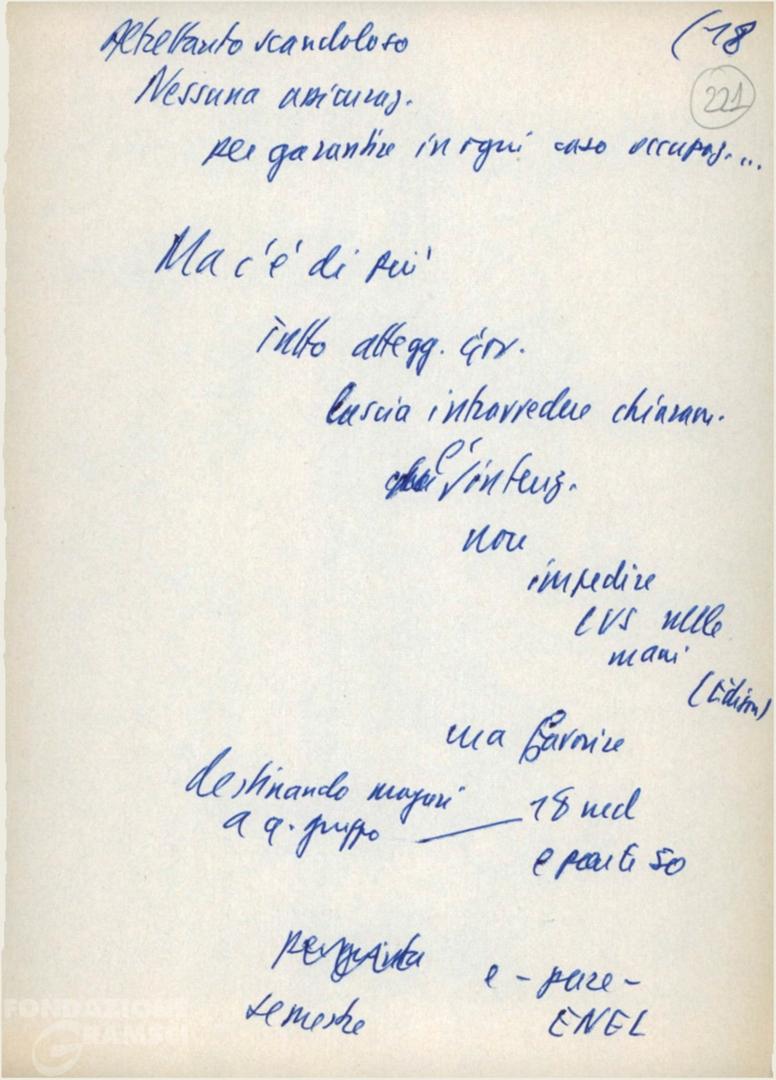 Altrettanto scandaloso
(18
221
Nessuna assicuraz.
per garantire in ogni caso occupaz. ...
Ma c'è di più
tutto attegg. Gov.
lascia intravvedere chiaram.
l'intenz.
non
impedire
CVS nelle
mani
(Edison)
ma favorire
destinando magari
a q. gruppo
18 mil
e parte 50
semestre
e - pare -
ENEL
FONDAZIONE
GRAMSCI